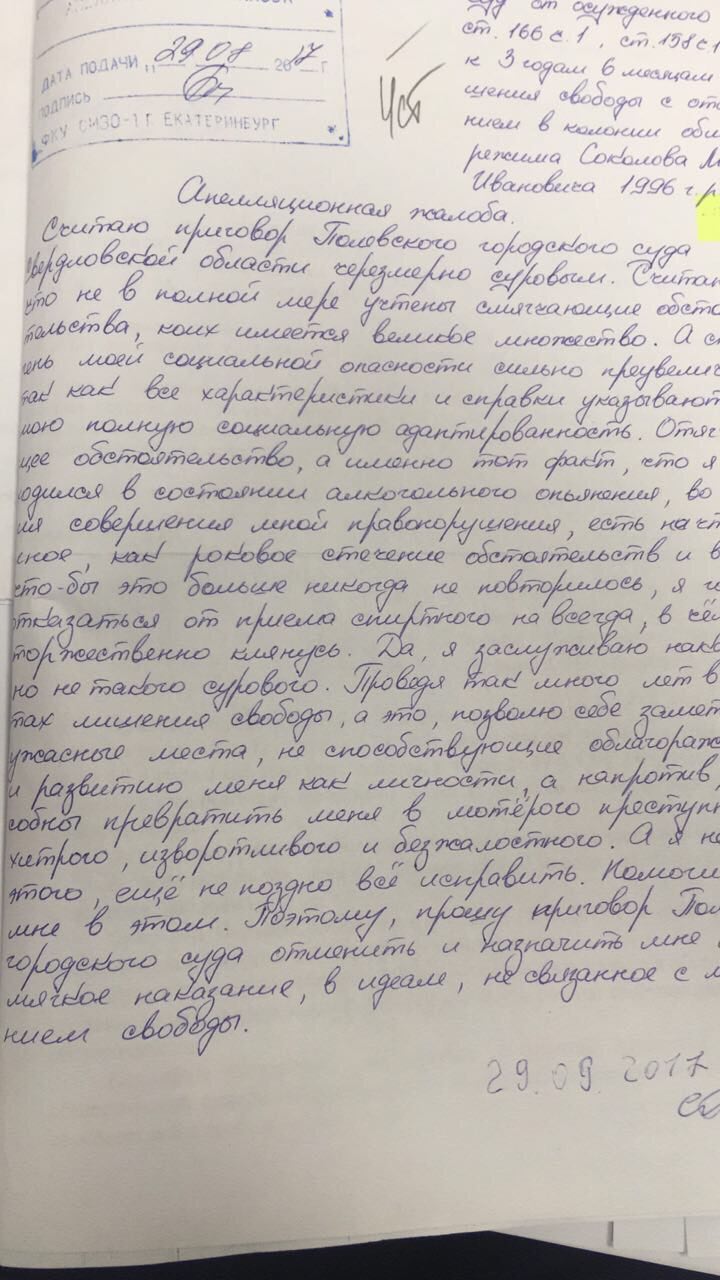 ДАТА ПОДАЧИ „29 08 2017 г
ПОДПИСЬ
ФКУ СИЗО-1 Г. ЕКАТЕРИНБУРГ
суд от осужденного
ст. 166 с. 1, ст. 158 с 1
к 3 годам 6 месяцам
щения свободы с от
нием в колонии об
режима Соколова
Ивановича 1996 г. р
Апелляционная жалоба.
Считаю приговор Полевского городского суда
вердловской области черезмерно суровым. Счита
что не в полной мере учтены смягчающие обсто
тельства, коих имеется великое множество. А с
ень моей социальной опасности сильно преувелич
так как все характеристики и справки указывают
мою полную социальную адаптированность. Отяг
щее обстоятельство, а именно тот факт, что я
одился в состоянии алкогольного опьянения, во
ия совершения мной правонорушения, есть не что
иное, как роковое стечение обстоятельств и в
что-бы это больше никогда не повторилось, я
отказаться от приема спиртного на всегда, в чём
торжественно клянусь. Да, я заслуживаю нака
но не такого сурового. Проводя так много лет в
тах лишения свободы, а это, позволю себе замет
ужасные места, не способствующие облагораж
и развитию меня как личности, а напротив,
собны превратить меня в мотёрого преступн
хитрого, изворотливого и безжалостного. А я не
этого, ещё не поздно всё исправить. Помоги
мне в этом. Поэтому, прошу приговор Пол
городского суда отменить и назначить мне
мягкое наказание, в идеале, не связанное с
нием свободы.
29.09.2017